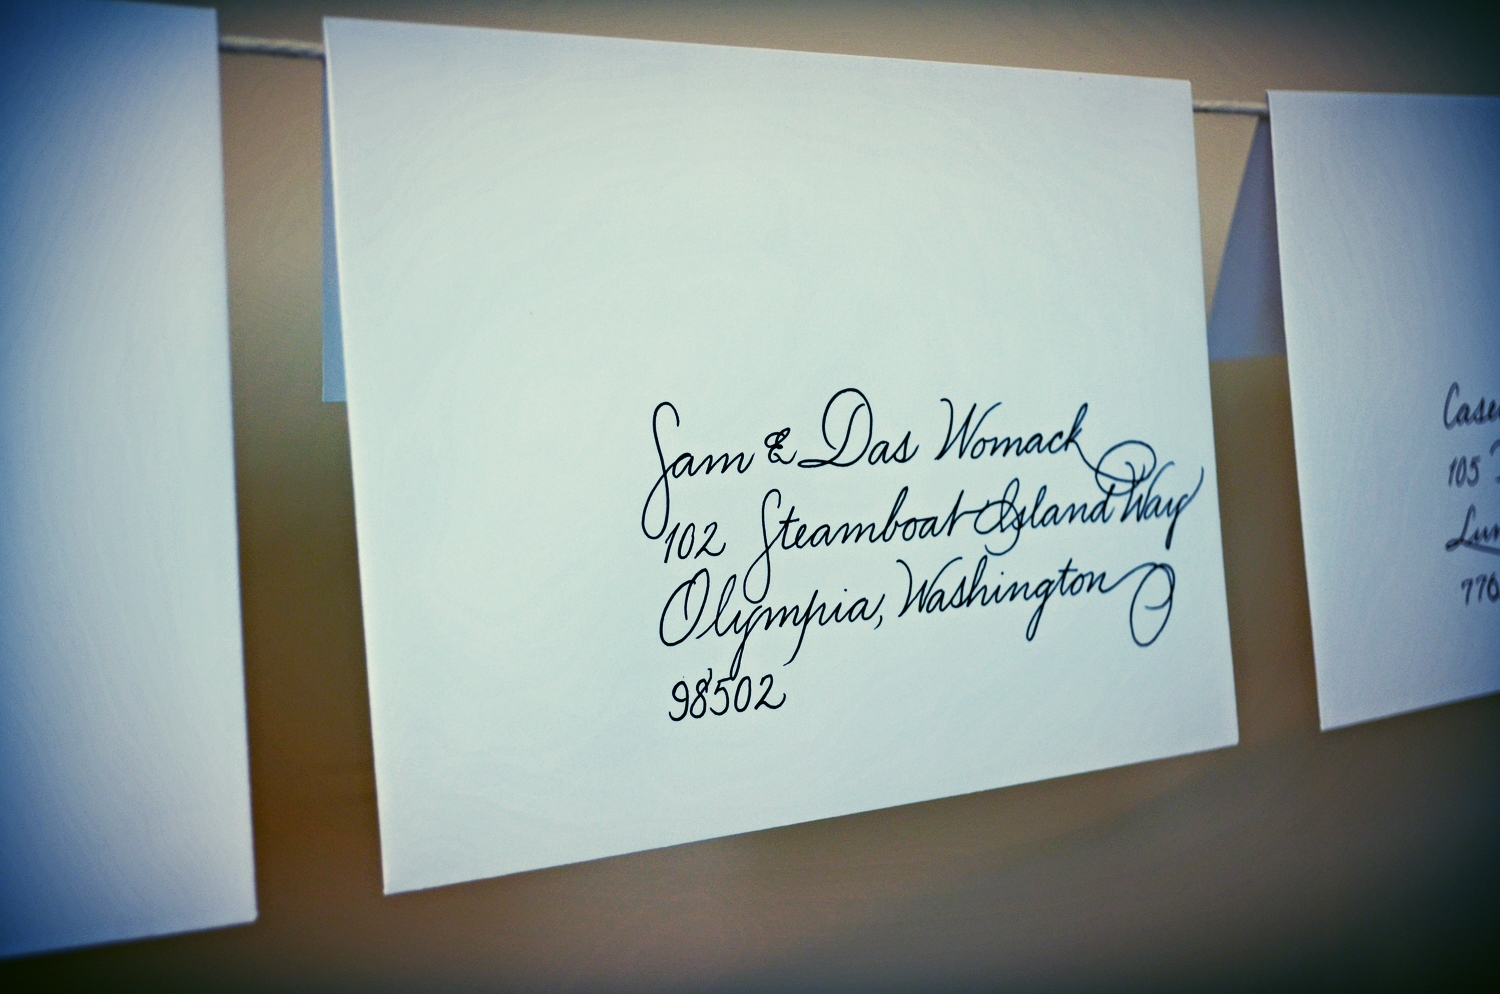 Sam & Das Womack
102 Steamboat Island Way
Olympia, Washington
98502
105